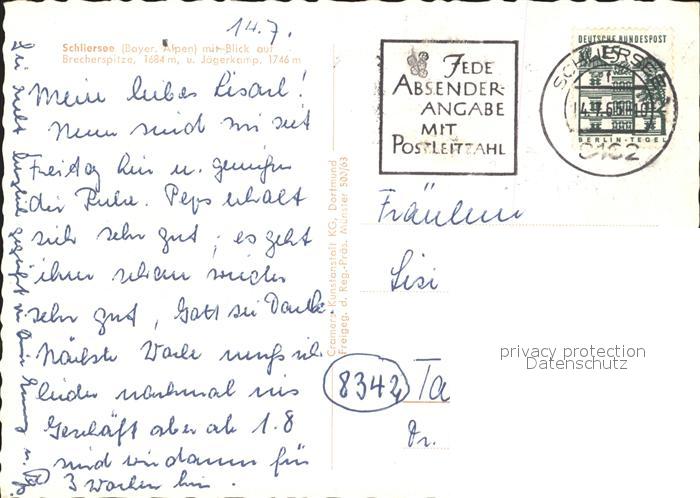 14.7.
Schliersee (Bayer. Alpen) mit Blick auf
Brecherspitze, 1684 m, u. Jägerkamp, 1746 m
Mein liebes Liserl!
Nun sind wir seit
Freitag hier u. genießen
die Ruhe. Peps erholt
sich sehr gut; es geht
ihm schon wieder
sehr gut, Gott sei Dank.
Nächste Woche muß ich
leider nochmal ins
Geschäft aber ab 1.8
sind wir dann für
3 Wochen hier.
Sei recht herzlich gegrüßt von Deiner
Cramers Kunstanstalt KG, Dortmund
Freigeg. d. Reg.-Präs. Münster 502/63
JEDE
ABSENDER-
ANGABE
MIT
POSTLEITZAHL
DEUTSCHE BUNDESPOST
SCHLIERSEE
8162
BERLIN-TEGEL
Fräulein
Lisi
8342 Ta
Dr.
privacy protection
Datenschutz